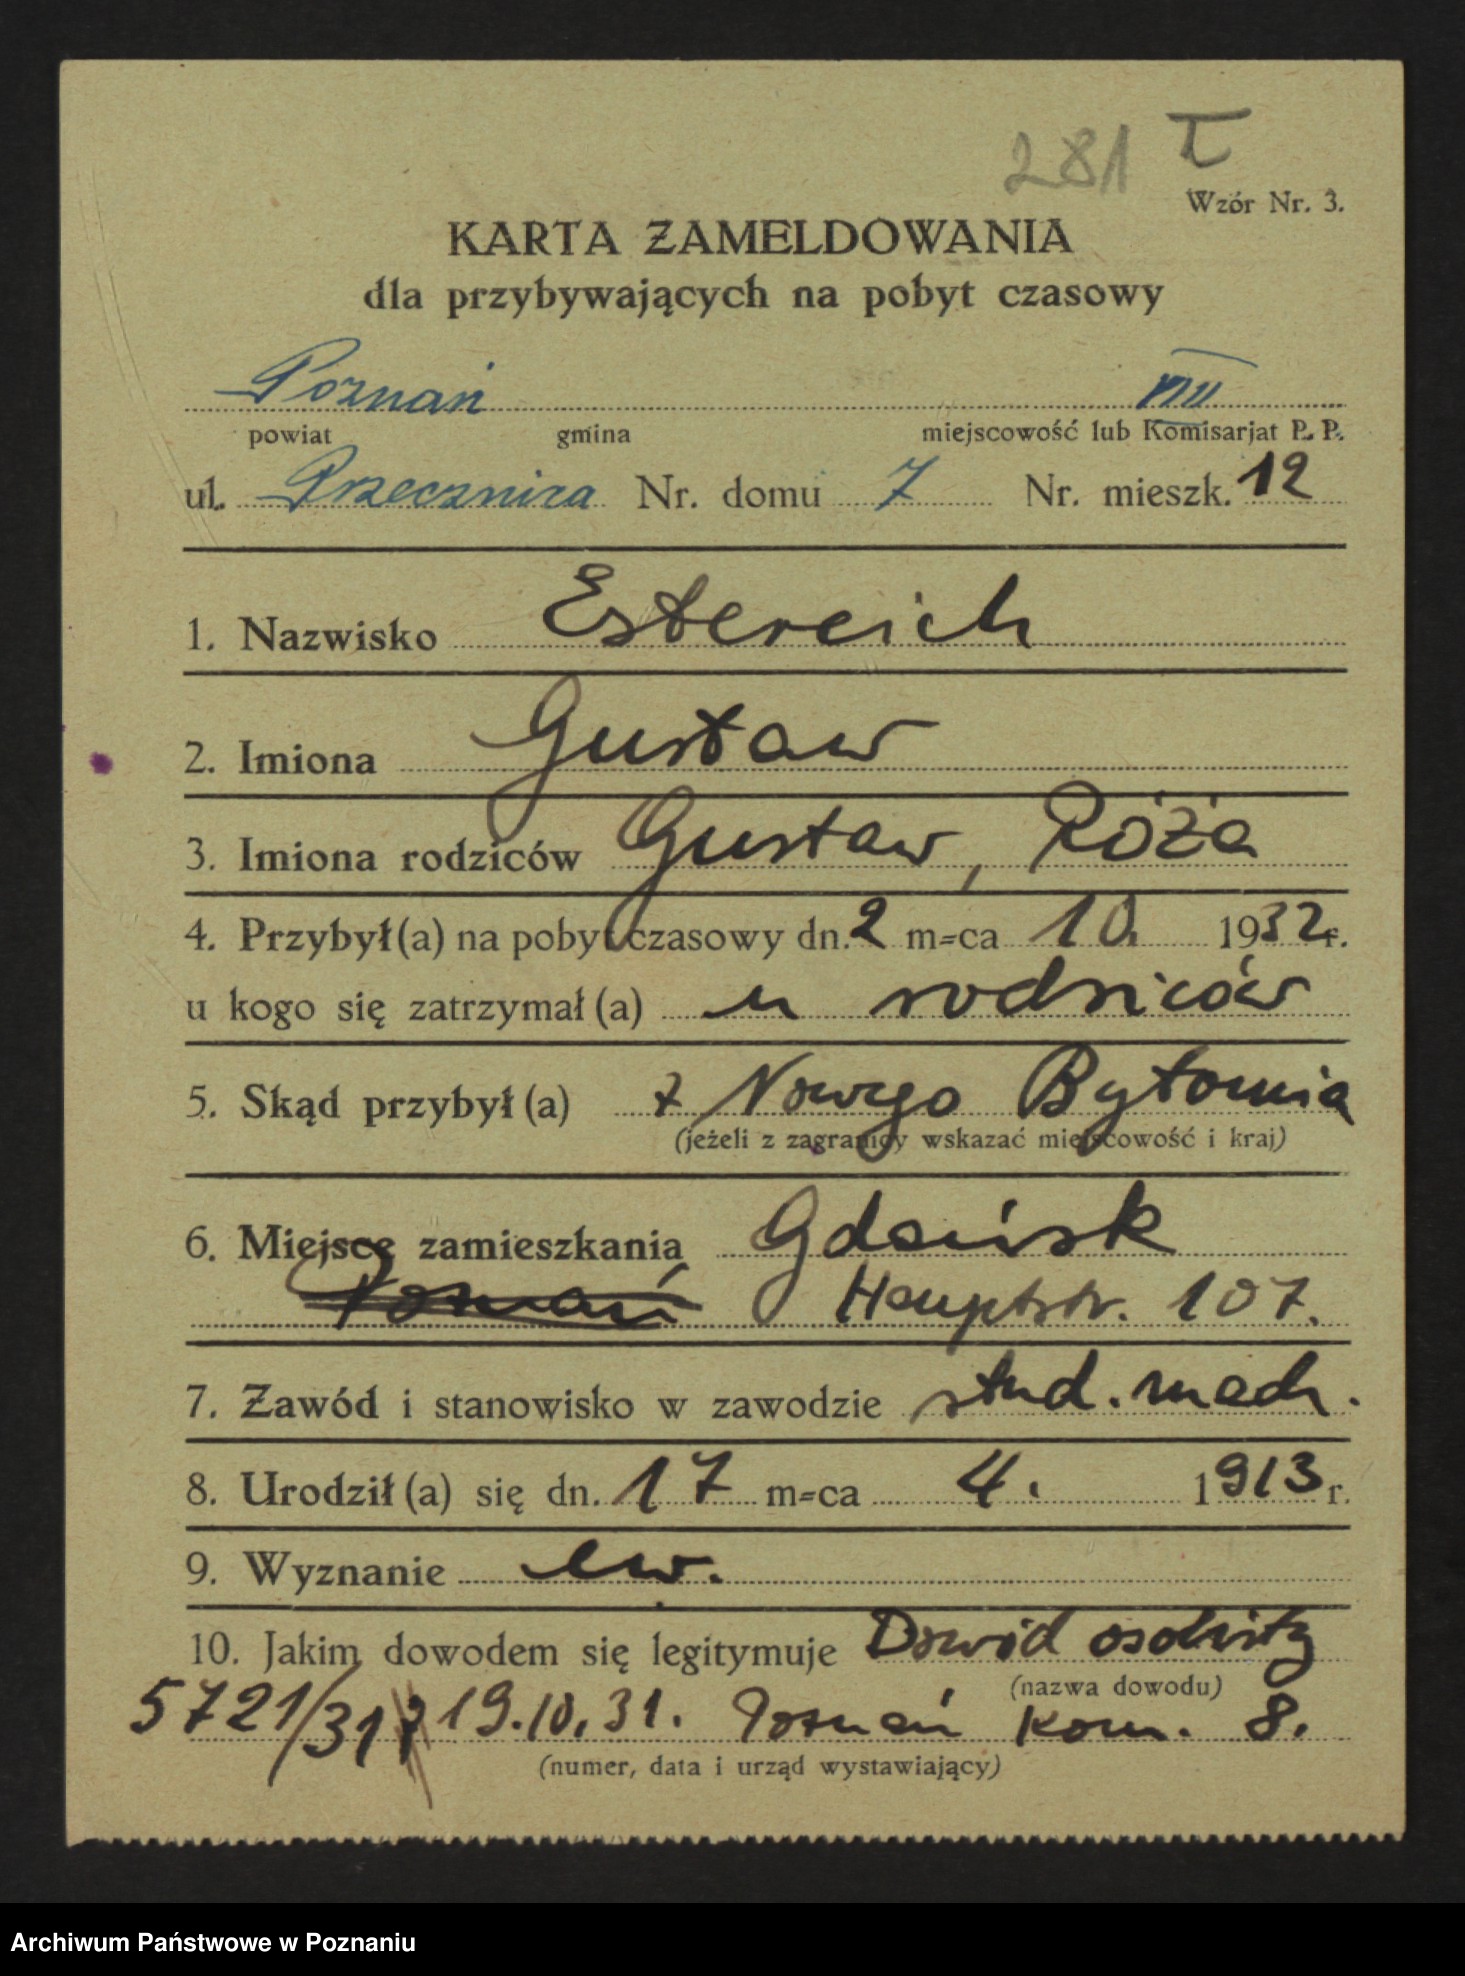 281 I
Wzór Nr. 3.
KARTA ZAMELDOWANIA
dla przybywających na pobyt czasowy
Poznań VIII
powiat gmina miejscowość lub Komisarjat P. P.
ul. Przecznica Nr. domu 7 Nr. mieszk. 12
1. Nazwisko Estereich
2. Imiona Gustaw
3. Imiona rodziców Gustaw, Róża
4. Przybył(a) na pobyt czasowy dn. 2 m-ca 10. 1932 r.
u kogo się zatrzymał(a) u rodziców
5. Skąd przybył(a) z Nowego Bytomia
(jeżeli z zagranicy wskazać miejscowość i kraj)
6. Miejsce zamieszkania Gdańsk
Poznań Hauptstr. 107.
7. Zawód i stanowisko w zawodzie stud. mach.
8. Urodził(a) się dn. 17 m-ca 4. 1913 r.
9. Wyznanie ew.
10. Jakim dowodem się legitymuje Dowód osobisty
(nazwa dowodu)
5721/31 19.10.31. Poznań Kom. 8.
(numer, data i urząd wystawiający)
Archiwum Państwowe w Poznaniu